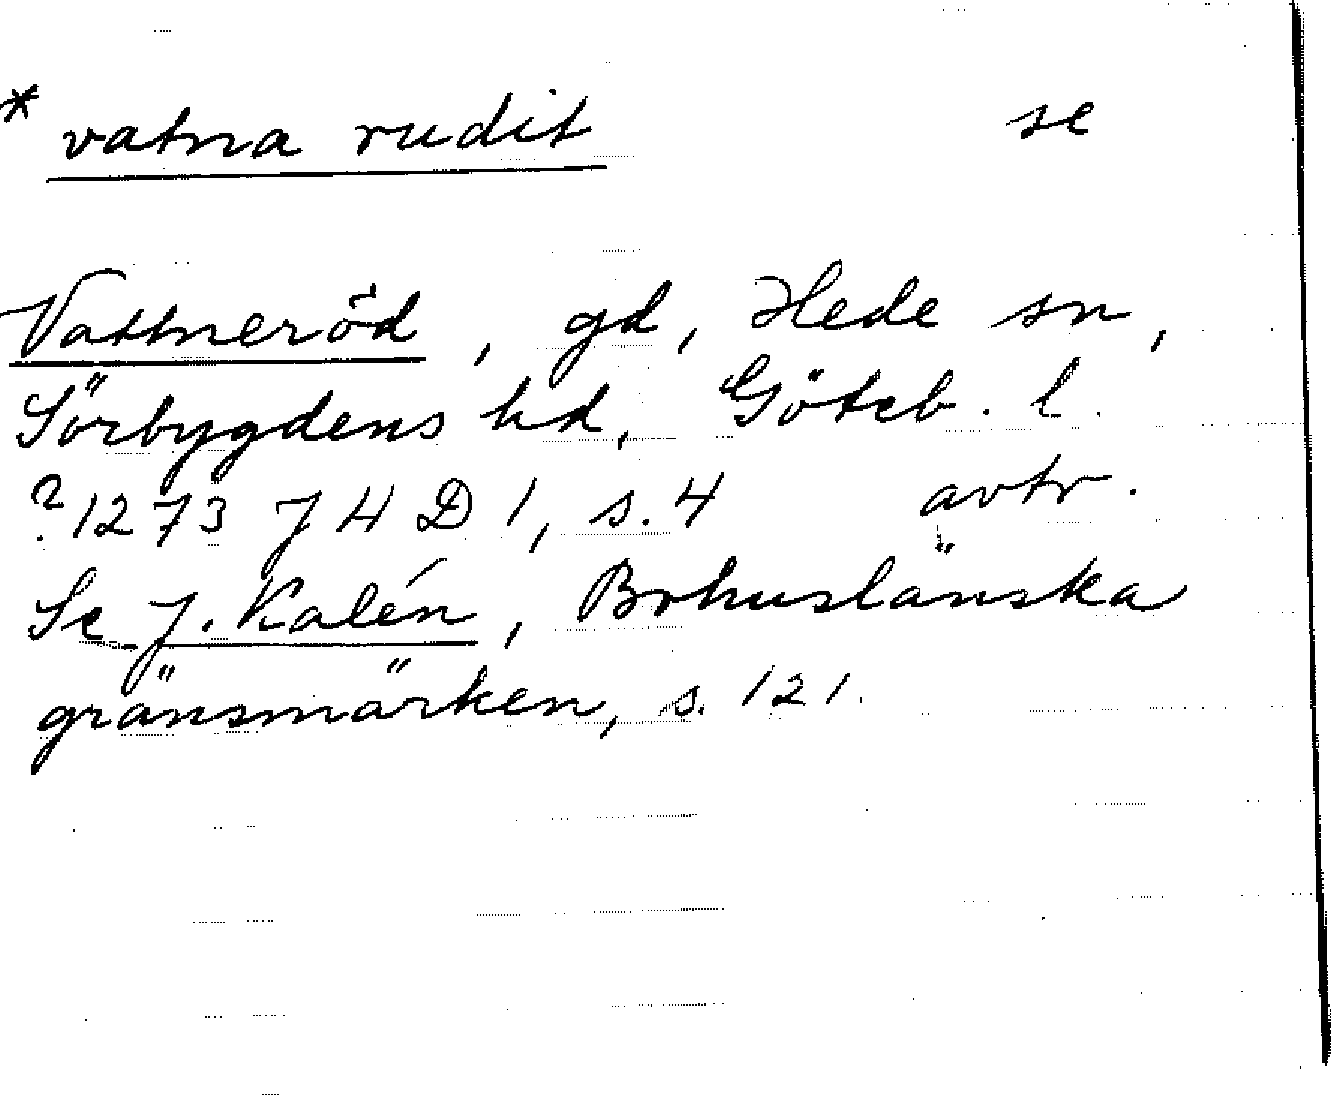 * vatna rudit se
Vattneröd, gd, Hede sn,
Sörbygdens hd, Göteb. l.
? 1273 J 4 D 1, s. 4 avtr.
Se J. Kalén, Bohuslänska
gränsmärken, s. 121.